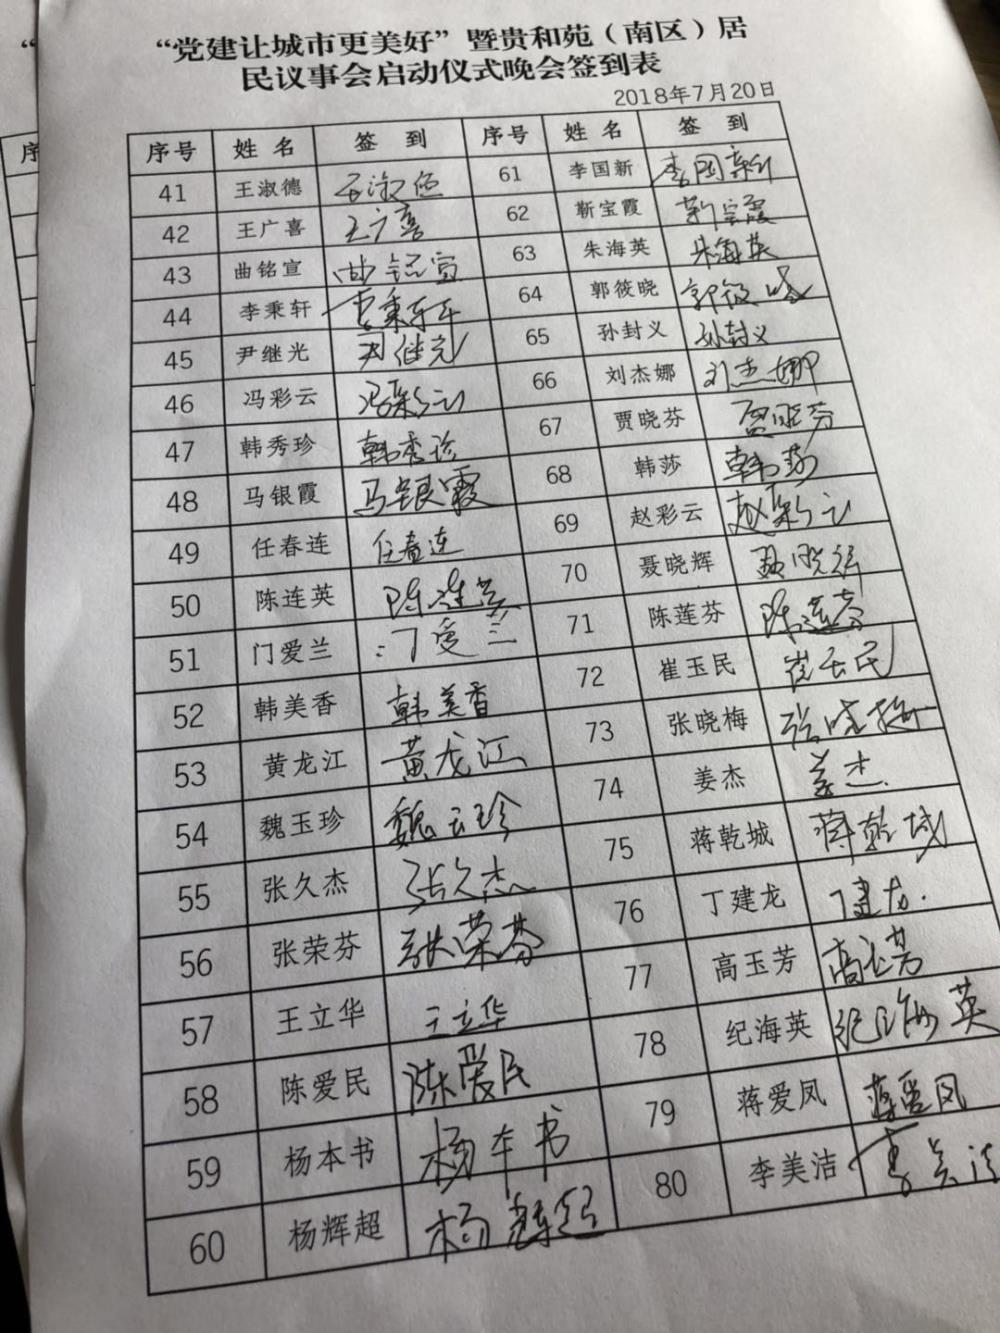 “党建让城市更美好”暨贵和苑（南区）居
民议事会启动仪式晚会签到表
2018年7月20日
序号 姓名 签到 序号 姓名 签到
41 王淑德 王淑德 61 李国新 李国新
42 王广喜 王广喜 62 靳宝霞 靳宝霞
43 曲铭宣 曲铭宣 63 朱海英 朱海英
44 李秉轩 李秉轩 64 郭筱晓 郭筱晓
45 尹继光 尹继光 65 孙封义 孙封义
46 冯彩云 冯彩云 66 刘杰娜 刘杰娜
47 韩秀珍 韩秀珍 67 贾晓芬 贾晓芬
48 马银霞 马银霞 68 韩莎 韩莎
49 任春连 任春连 69 赵彩云 赵彩云
50 陈连英 陈连英 70 聂晓辉 聂晓辉
51 门爱兰 门爱兰 71 陈莲芬 陈莲芬
52 韩美香 韩美香 72 崔玉民 崔玉民
53 黄龙江 黄龙江 73 张晓梅 张晓梅
54 魏玉珍 魏玉珍 74 姜杰 姜杰
55 张久杰 张久杰 75 蒋乾城 蒋乾城
56 张荣芬 张荣芬 76 丁建龙 丁建龙
57 王立华 王立华 77 高玉芳 高玉芳
58 陈爱民 陈爱民 78 纪海英 纪海英
59 杨本书 杨本书 79 蒋爱凤 蒋爱凤
60 杨辉超 杨辉超 80 李美洁 李美洁